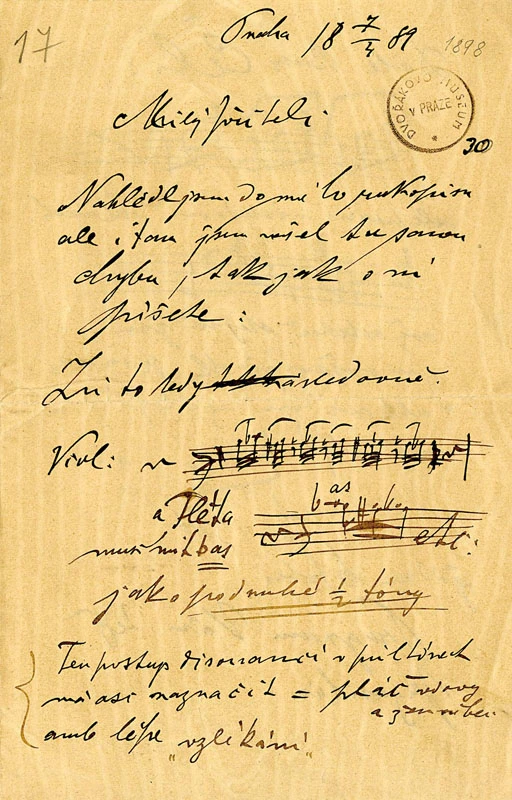 17
Praha 18 7/4 89
1898
DVOŘÁKOVO MUSEUM
V PRAZE
30
Milý příteli.
Nahlédl jsem do mého rukopisu
ale i tam jsem našel tu samou
chybu, tak jak o ní
píšete:
Zní to tedy následovně.
Viol:
as
a Fléta
etc:
musí mít bas
jako podruhé ½ tóny
Ten postup disonancí v půltónech
má asi naznačit = pláč vdovy
a
anb lépe „vzlékání"